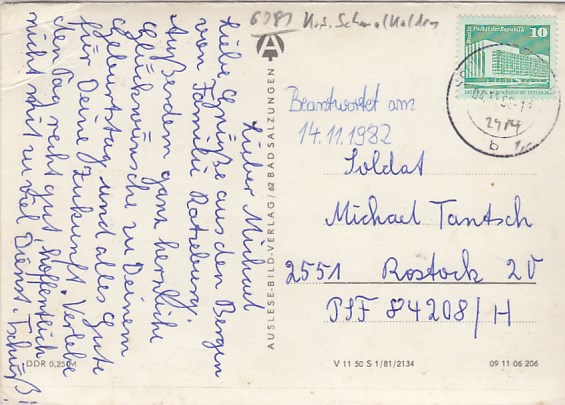 6081 Krs. Schmalkalden
Lieber Michael
Liebe Grüße aus den Bergen
von Familie Ratzeburg.
Außerdem ganz herzliche
Glückwünsche zu Deinem
Geburtstag und alles Gute
für Deine Zukunft. Verlebe
den Tag recht gut, hoffentlich
nicht mit zu viel Dienst. Tschüß!
DDR 0,25M
AUSLESE-BILD-VERLAG/62 BAD SALZUNGEN
A
Palast der Republik
10
DDR
Beantwortet am
14.11.1982
Soldat
Michael Tantsch
2551 Rostock 2V
PSF 84208/H
V 11 50 S 1/81/2134
09 11 06 206